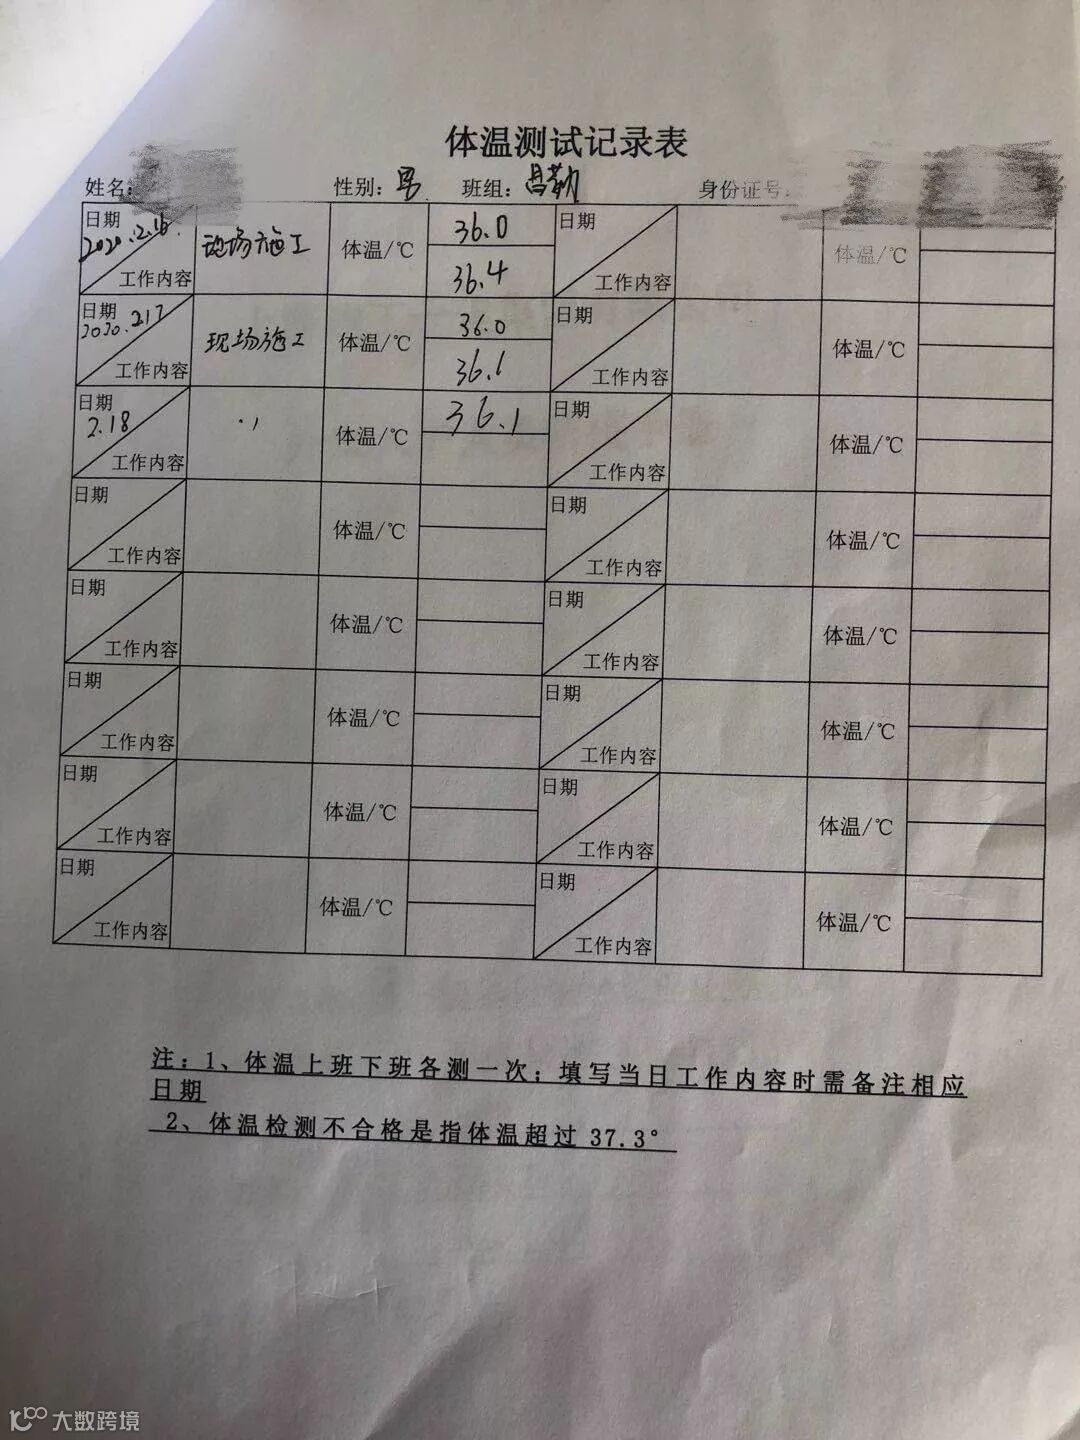 体温测试记录表
姓名: 性别:男 班组:昌勒 身份证号:
日期 2020.2.16 工作内容 现场施工 体温/℃ 36.0 36.4 日期 工作内容 体温/℃
日期 2020.2.17 工作内容 现场施工 体温/℃ 36.0 36.1 日期 工作内容 体温/℃
日期 2.18 工作内容 体温/℃ 36.1 日期 工作内容 体温/℃
日期 工作内容 体温/℃ 日期 工作内容 体温/℃
日期 工作内容 体温/℃ 日期 工作内容 体温/℃
日期 工作内容 体温/℃ 日期 工作内容 体温/℃
日期 工作内容 体温/℃ 日期 工作内容 体温/℃
日期 工作内容 体温/℃ 日期 工作内容 体温/℃
注:1、体温上班下班各测一次;填写当日工作内容时需备注相应
日期
2、体温检测不合格是指体温超过 37.3°
大数跨境